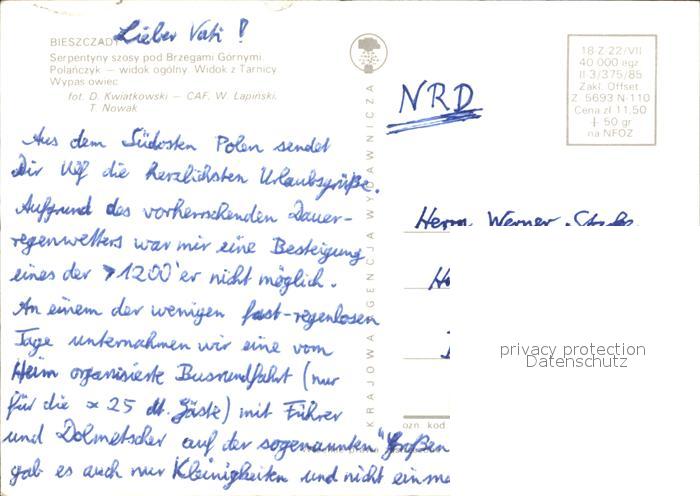 Lieber Vati!
BIESZCZADY
Serpentyny szosy pod Brzegami Górnymi.
Polańczyk — widok ogólny. Widok z Tarnicy
Wypas owiec
fot. D. Kwiatkowski — CAF, W. Łapiński,
T. Nowak
Aus dem Südosten Polen sendet
Dir Ulf die herzlichsten Urlaubsgrüße.
Aufgrund des vorherrschenden Dauer-
regenwetters war mir eine Besteigung
eines der >1200'er nicht möglich.
An einem der wenigen fast-regenlosen
Tage unternahmen wir eine vom
Heim organisierte Busrundfahrt (nur
für die ≈ 25 dt. Gäste) mit Führer
und Dolmetscher auf der sogenannten "Großen
gab es auch nur Kleinigkeiten und nicht einma
KRAJOWA AGENCJA WYDAWNICZA
NRD
18 Z 22/VII
40 000 egz
II 3/375/85
Zakł. Offset.
Z. 5693 N-110
Cena zł 11,50
+ 50 gr
na NFOZ
Herrn Werner
Ho
ozn. kod
privacy protection
Datenschutz